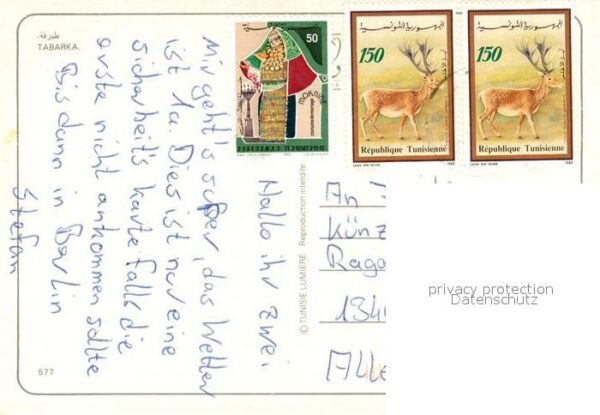 طبرقة.
TABARKA.
Hallo ihr zwei
Mir geht's super, das Wetter
ist 1a. Dies ist nur eine
sicherheit's karte falls die
erste nicht ankommen sollte
Bis dann in Berlin
Stefan
577
© TUNISIE LUMIÈRE Reproduction interdite
50
MOKNINE
costume de mariage
الجمهورية التونسية
150
République Tunisienne
الجمهورية التونسية
150
République Tunisienne
An
Künz
Rago
134
Alle
privacy protection
Datenschutz